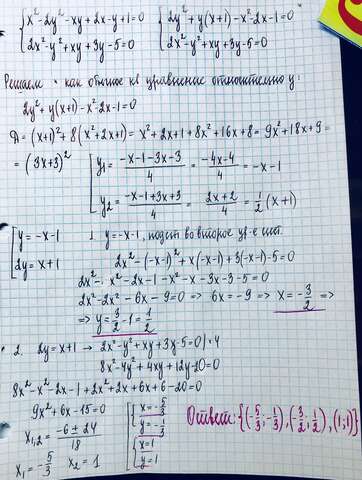 {x² - 2y² - xy + 2x - y + 1 = 0 {2y² + y(x+1) - x² - 2x - 1 = 0
{2x² - y² + xy + 3y - 5 = 0 {2x² - y² + xy + 3y - 5 = 0
Решаем как обычное кв уравнение относительно y:
2y² + y(x+1) - x² - 2x - 1 = 0
Д = (x+1)² + 8(x² + 2x + 1) = x² + 2x + 1 + 8x² + 16x + 8 = 9x² + 18x + 9 =
= (3x+3)² [y₁ = (-x-1-3x-3)/4 = (-4x-4)/4 = -x-1
[y₂ = (-x-1+3x+3)/4 = (2x+2)/4 = 1/2 (x+1)
[y = -x-1 1. y = -x-1, подст во второе ур-е сист.
[2y = x+1 2x² - (-x-1)² + x(-x-1) + 3(-x-1) - 5 = 0
2x² - x² - 2x - 1 - x² - x - 3x - 3 - 5 = 0
2x² - 2x² - 6x - 9 = 0 => 6x = -9 => x = -3/2 =>
=> y = 3/2 - 1 = 1/2
2. 2y = x+1 → 2x² - y² + xy + 3y - 5 = 0 | · 4
8x² - 4y² + 4xy + 12y - 20 = 0
8x² - x² - 2x - 1 + 2x² + 2x + 6x + 6 - 20 = 0
9x² + 6x - 15 = 0 [{x = -5/3
x₁,₂ = (-6 ± 24)/18 {y = -1/3
x₁ = -5/3 x₂ = 1 [{x = 1
{y = 1
Ответ: {(-5/3; -1/3), (-3/2; 1/2), (1; 1)}